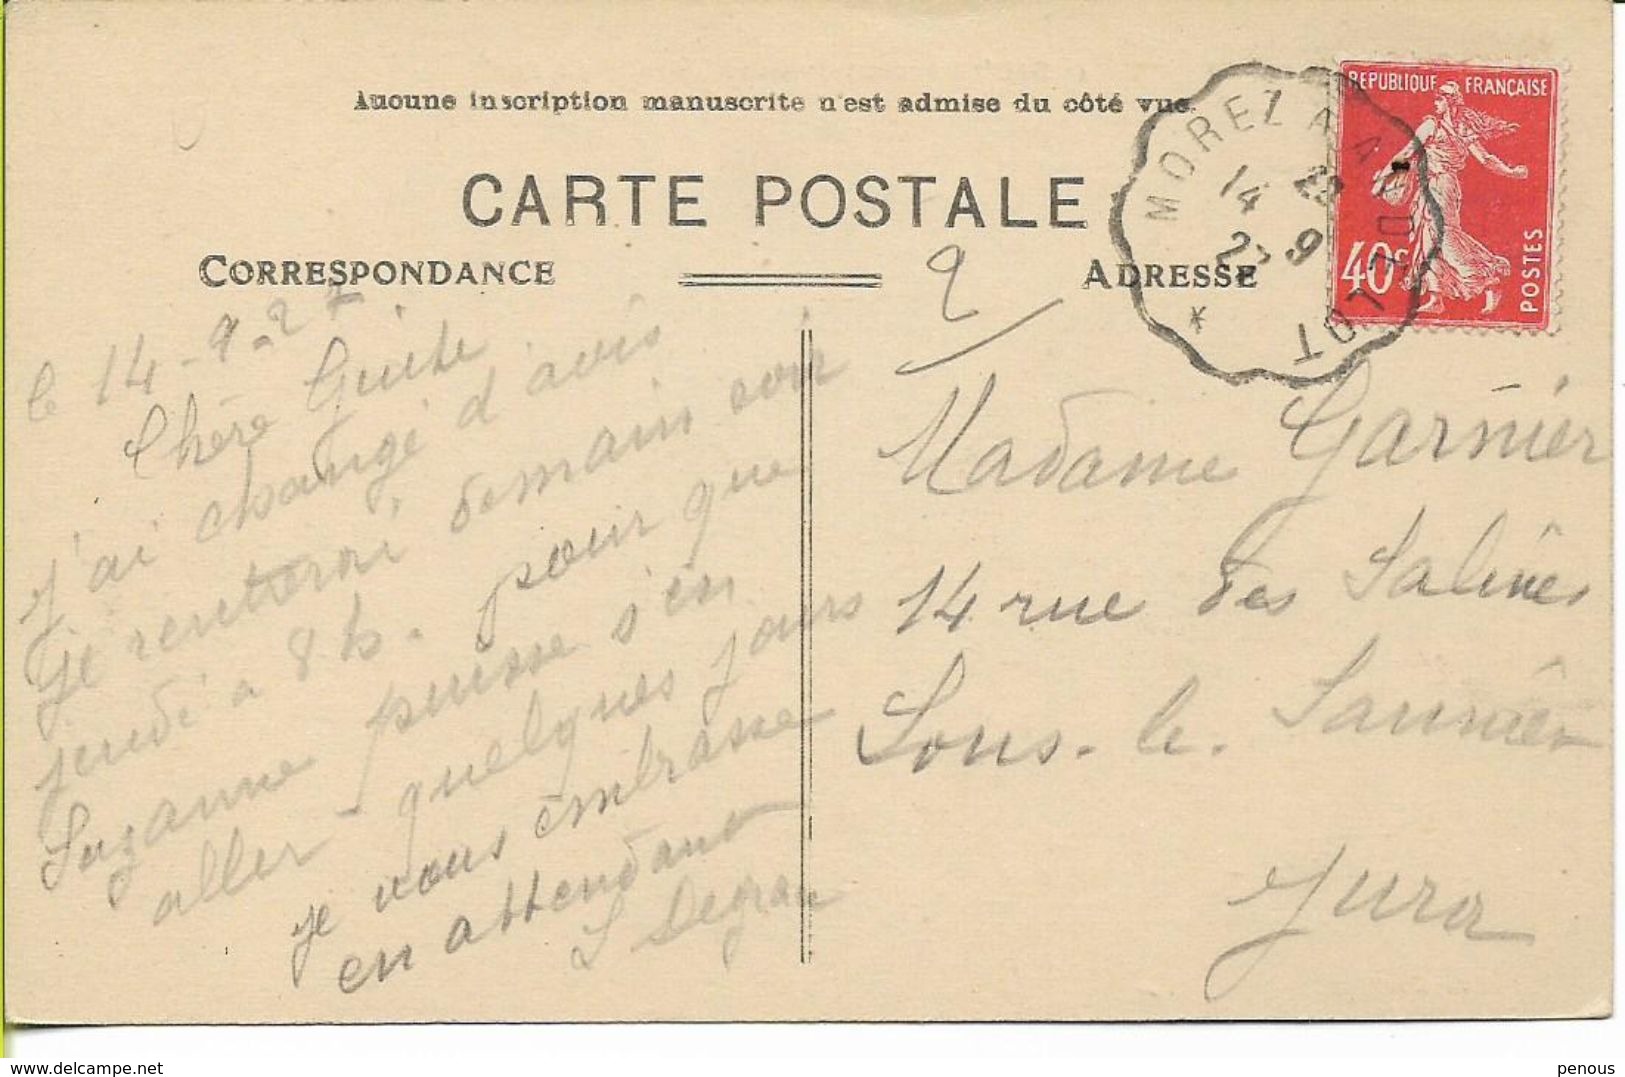 Aucune inscription manuscrite n'est admise du côté vue.
CARTE POSTALE
CORRESPONDANCE
ADRESSE
le 14-9-27
Chère Guite
J'ai changé d'avis
je rentrerai demain soir
jeudi à 8 h. pour que
Suzanne puisse s'en
aller quelques jours
je vous embrasse
en attendant
2
MOREZ A A DOLLOT
14 22
27 9
REPUBLIQUE FRANÇAISE
40c
POSTES
Madame Garnier
14 rue des Salines
Lons-le-Saunier
Jura
penous